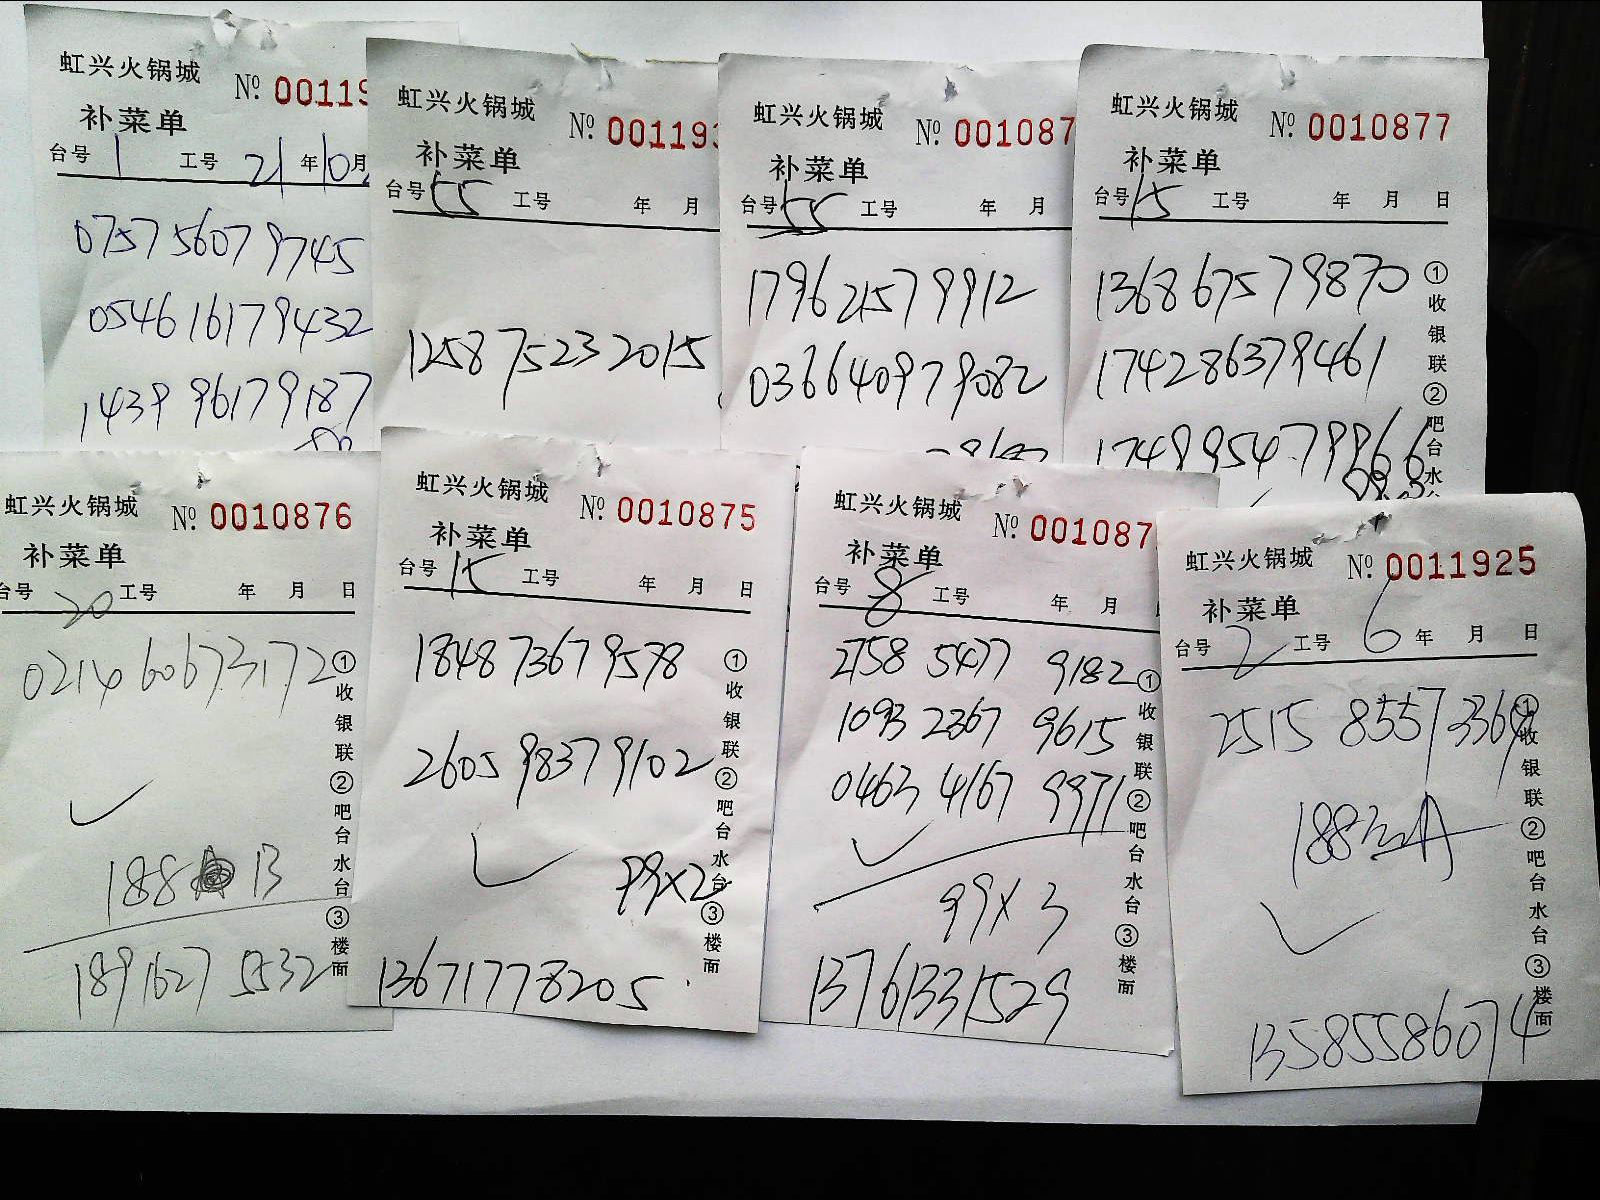 虹兴火锅城 №. 00119
补菜单
台号 1 工号 21 年 10 月
0757 5607 9745
0546 1617 9432
1439 9617 9187
虹兴火锅城 №. 001193
补菜单
台号 55 工号 年 月
1258 7523 2015
虹兴火锅城 №. 001087
补菜单
台号 55 工号 年 月
1796 2157 9912
0366 4097 9082
虹兴火锅城 №. 0010877
补菜单
台号 15 工号 年 月 日
1368 6757 9870
1742 8637 9461
1749 9547 9966
①收银联②吧台水
虹兴火锅城 №. 0010876
补菜单
台号 20 工号 年 月 日
0214 6067 3172
188 B
189 1627 5532
①收银联②吧台水台③楼面
虹兴火锅城 №. 0010875
补菜单
台号 15 工号 年 月 日
1848 7367 9578
2605 9837 9102
99x2
13671778205
①收银联②吧台水台③楼面
虹兴火锅城 №. 001087
补菜单
台号 8 工号 年 月
2758 5477 9182
1093 2367 9615
0463 4167 9971
99x3
13761331529
①收银联②吧台水台③楼面
虹兴火锅城 №. 0011925
补菜单
台号 2 工号 6 年 月 日
2515 8557 3364
188
13585586074
①收银联②吧台水台③楼面